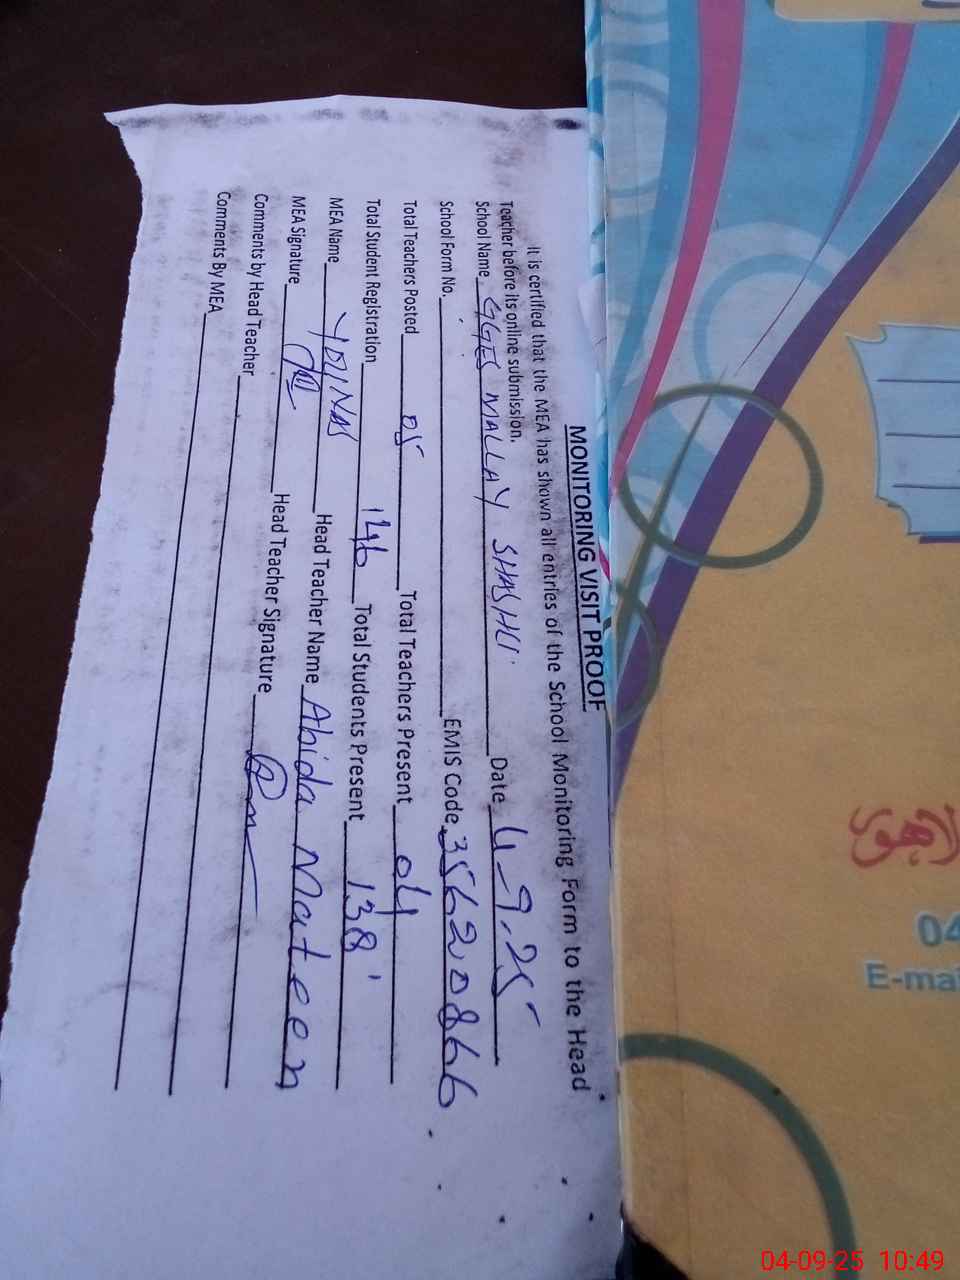 MONITORING VISIT PROOF
It is certified that the MEA has shown all entries of the School Monitoring Form to the Head
Teacher before its online submission.
School Name GGES MALLAY SHASHU Date 4-9-25
School Form No. EMIS Code 35620866
Total Teachers Posted 05 Total Teachers Present 04
Total Student Registration 146 Total Students Present 138
MEA Name YOUNAS Head Teacher Name Abida Mateen
MEA Signature Head Teacher Signature
Comments by Head Teacher
Comments By MEA
لاهور
04
E-mai
04-09-25 10:49